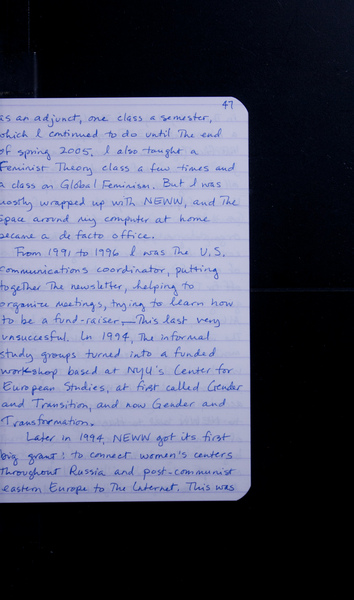 47
as an adjunct, one class a semester,
which I continued to do until the end
of spring 2005. I also taught a
Feminist Theory class a few times and
a class on Global Feminism. But I was
mostly wrapped up with NEWW, and the
space around my computer at home
became a de facto office.
From 1991 to 1996 I was the U.S.
communications coordinator, putting
together the newsletter, helping to
organize meetings, trying to learn how
to be a fund-raiser—This last very
unsuccesful. In 1994, the informal
study groups turned into a funded
workshop based at NYU's Center for
European Studies, at first called Gender
and Transition, and now Gender and
Transformation.
Later in 1994, NEWW got its first
big grant: to connect women's centers
throughout Russia and post-communist
eastern Europe to the Internet. This was